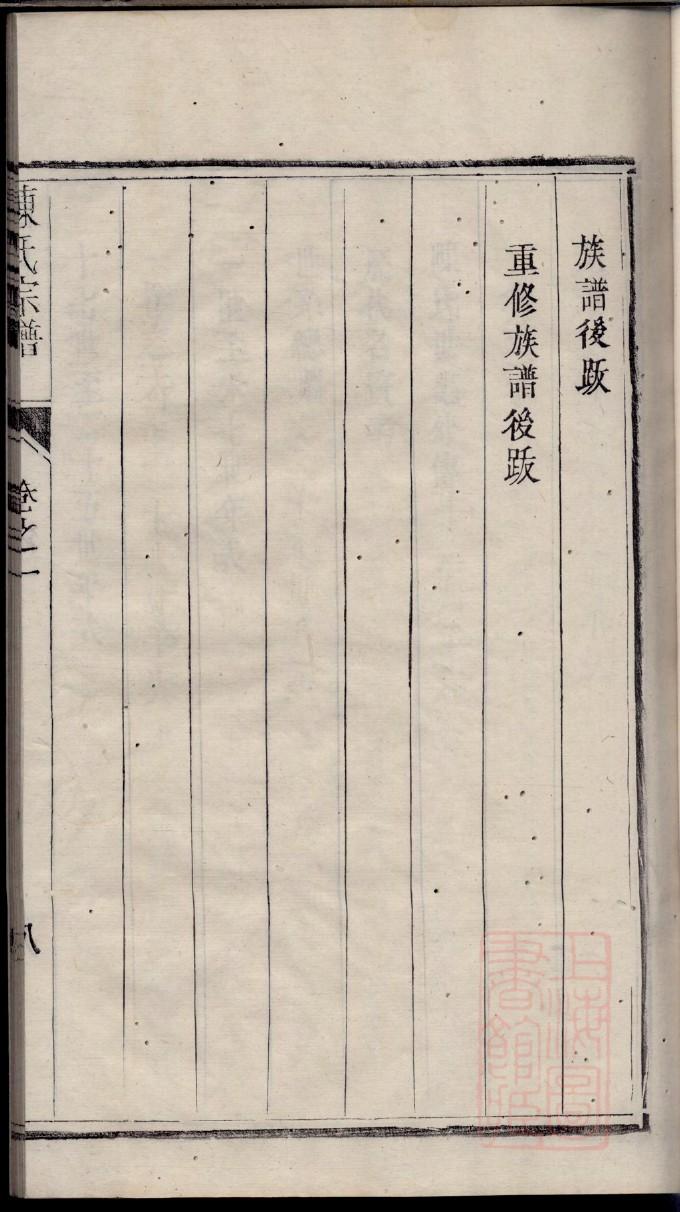 族譜後跋
重修族譜後跋
陳氏宗譜
卷之一
八
上海圖書館藏